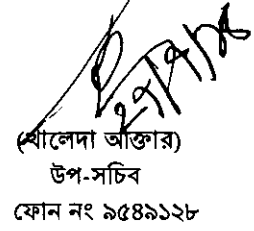 (খালেদা আক্তার)
উপ-সচিব
ফোন নং ৯৫৪৯১২৮